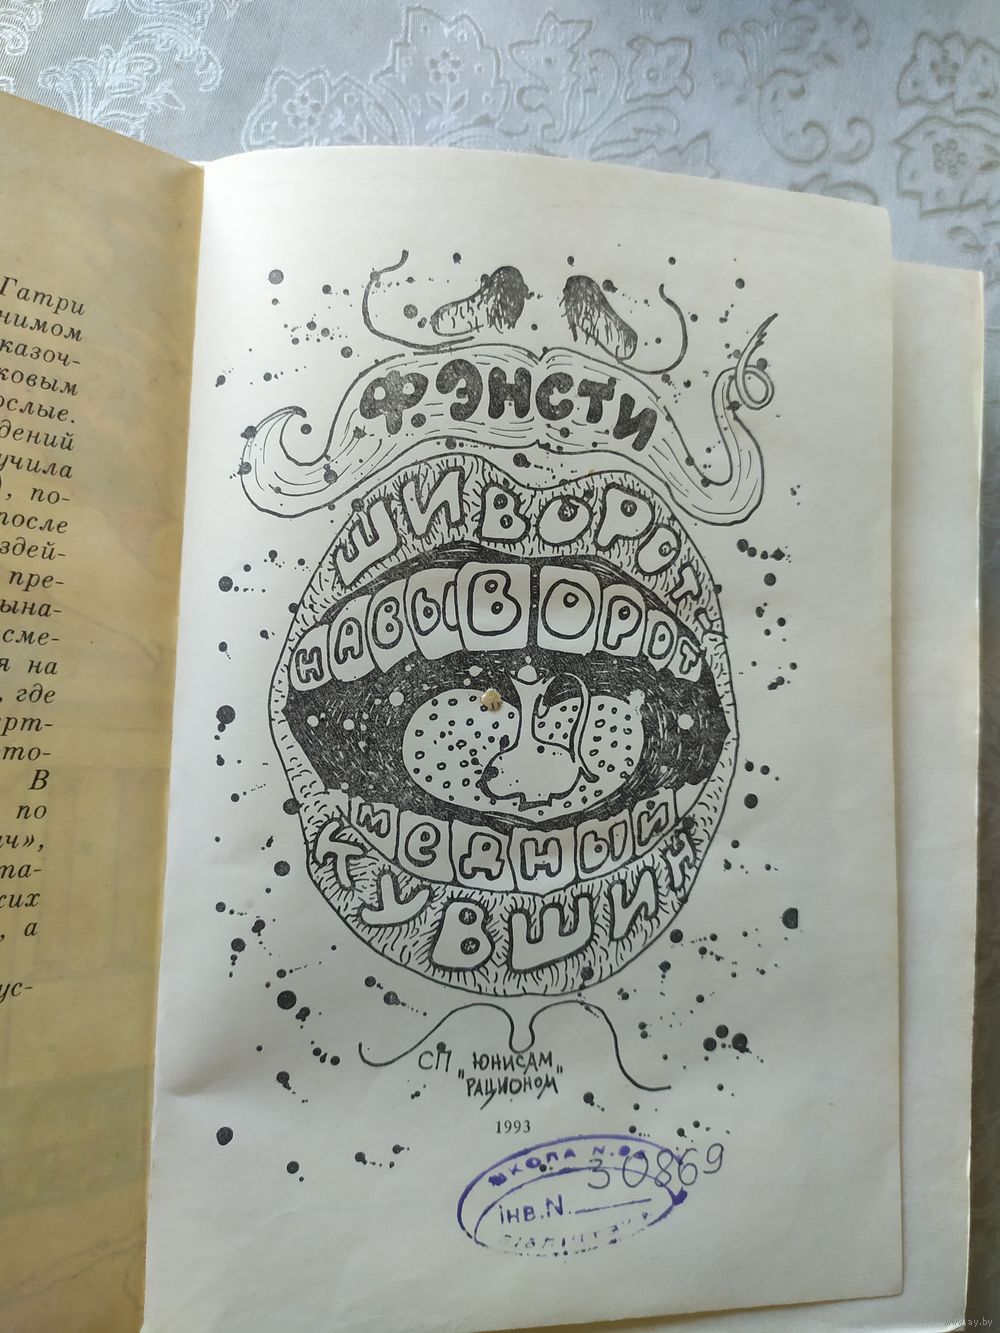 Гатри
нимом
казоч-
ковым
ослые.
дений
учила
), по-
после
здей-
пре-
ына-
сме-
я на
, где
ерт-
то-
В
по
ич»,
та-
ких
, а
ус-
Ф.ЭНСТИ
ШИВОРОТ-
НАВЫВОРОТ
МЕДНЫЙ
КУВШИН
СП „ЮНИСАМ
РАЦИОНОМ”
1993
ШКОЛА N.
ІНВ.N. 30869
БІБЛІЯТЭКА
www.ay.by